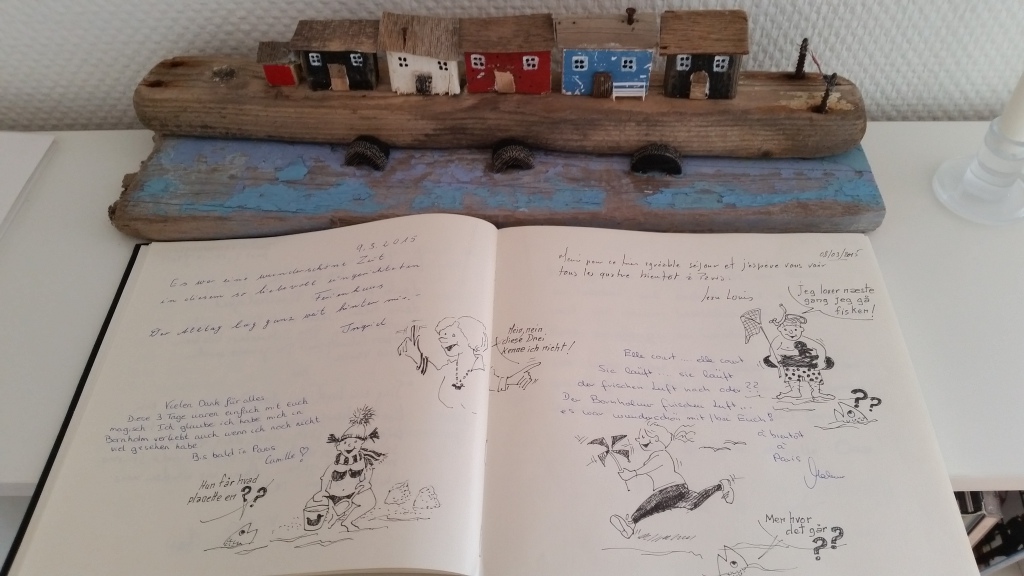 9.3.2015
Es war eine wunderschöne Zeit
in diesem so liebevoll eingerichteten
Ferienhaus
Der Alltag lag ganz weit hinter mir.-
Nein, nein
diese Drei
kenne ich nicht!
Vielen Dank für alles
Diese 3 Tage waren einfach mit euch
magisch. Ich glaube ich habe mich in
Bornholm verliebt auch wenn ich noch nicht
viel gesehen habe
Bis bald in Paris
Camille
Hun får hvad
planette en ??
08/03/2015
Merci pour ce très agréable séjour et j'espère vous voir
tous les quatre bientôt à Paris.
Jean Louis
Jeg lover næste
gang jeg gå
fisken!
??
Elle court... elle court
Sie läuft... sie läuft
der frischen Luft nach oder ??
Der Bornholmer frischen Luft...
es war wunderschön mit Euch!
à bientôt
à
Paris
Men hvor
det går
??